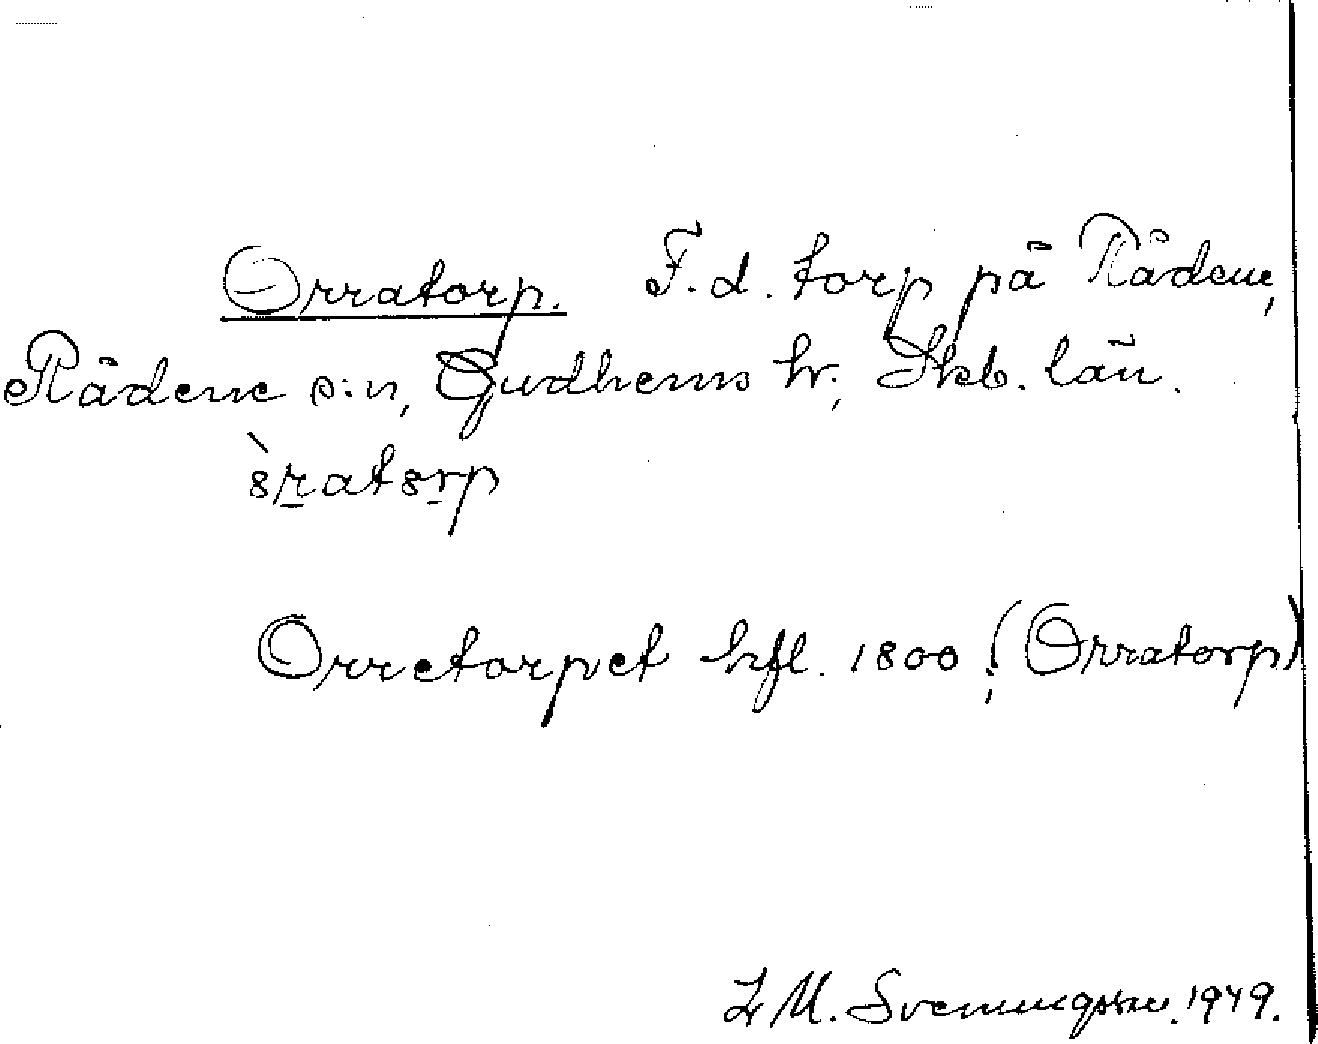 Orratorp. F.d. torp på Rådene,
Rådene s:n, Gudhems hr, Skb. län.
Orretorpet hfl. 1800 ; (Orratorp)
M. Sveningsson. 1949.